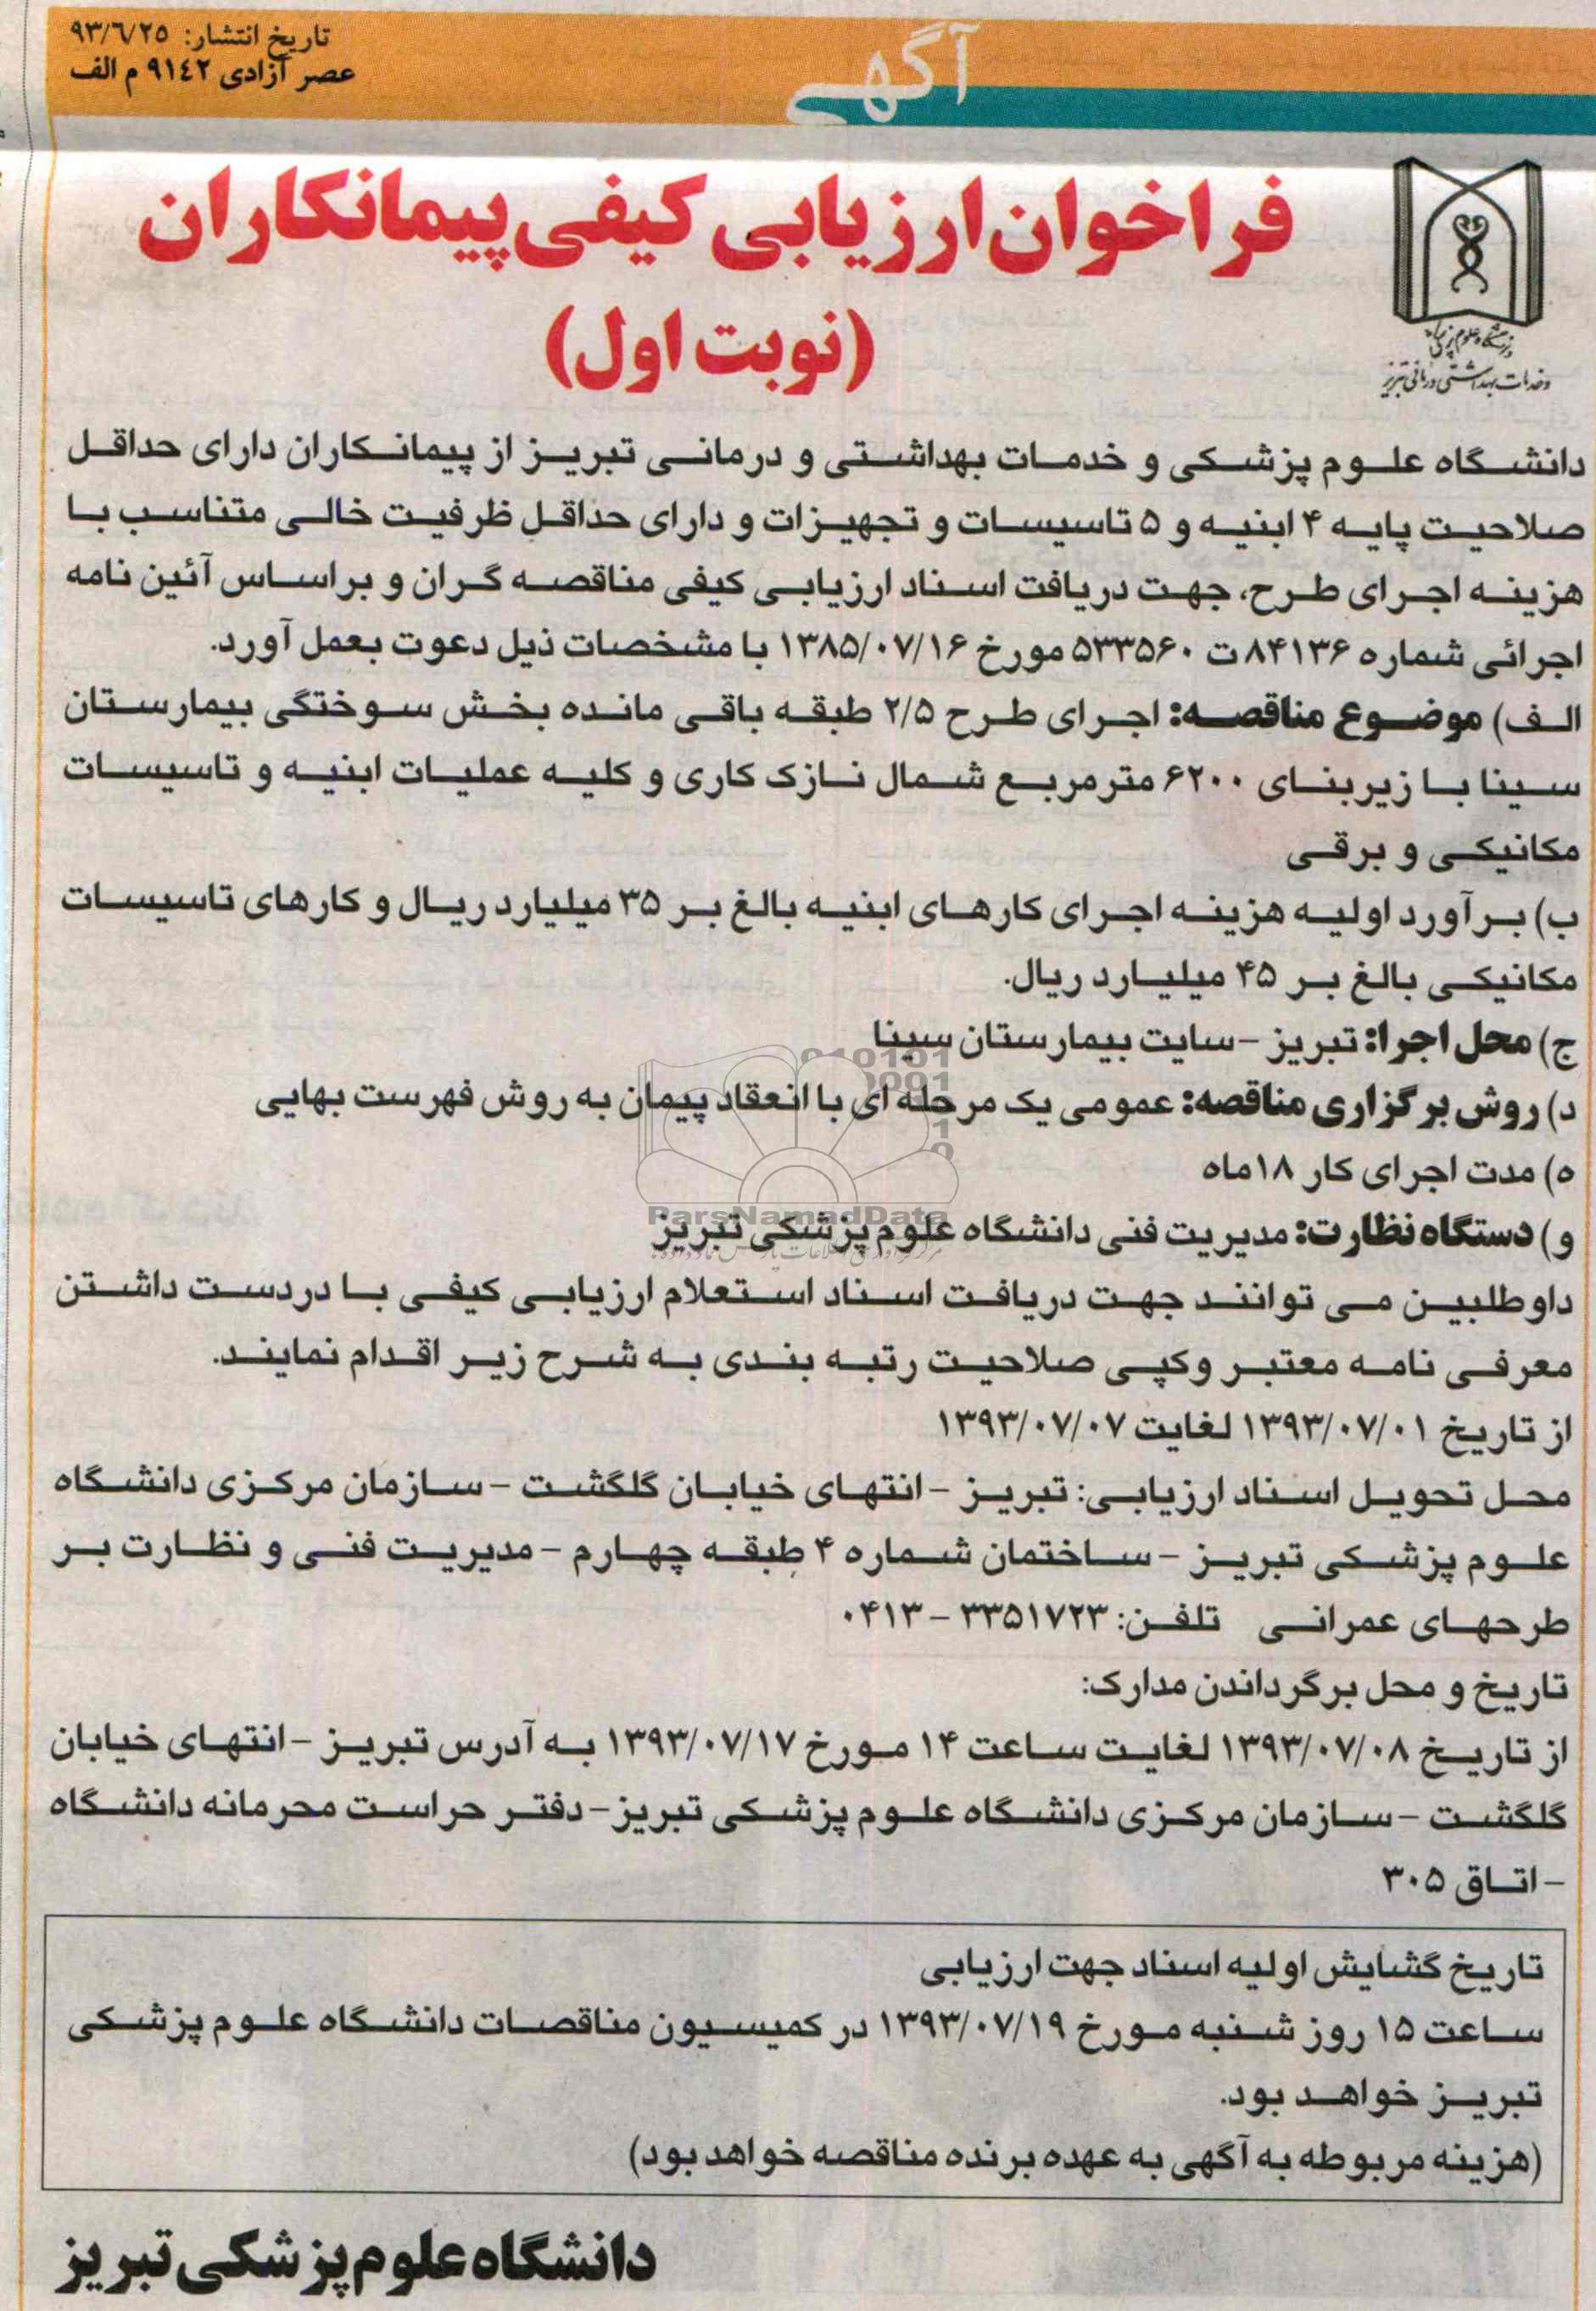 تاریخ انتشار: ۹۳/٦/۲۵
عصر آزادی ۹۱٤۲ م الف
آگهی
فراخوان ارزیابی کیفی پیمانکاران
(نوبت اول)
دانشگاه علوم پزشکی
و خدمات بهداشتی درمانی تبریز
دانشگاه علوم پزشکی و خدمات بهداشتی و درمانی تبریز از پیمانکاران دارای حداقل
صلاحیت پایه ۴ ابنیه و ۵ تاسیسات و تجهیزات و دارای حداقل ظرفیت خالی متناسب با
هزینه اجرای طرح، جهت دریافت اسناد ارزیابی کیفی مناقصه گران و براساس آئین نامه
اجرائی شماره ۸۴۱۳۶ت ۵۳۳۵۶۰ مورخ ۱۳۸۵/۰۷/۱۶ با مشخصات ذیل دعوت بعمل آورد.
الف) موضوع مناقصه: اجرای طرح ۲/۵ طبقه باقی مانده بخش سوختگی بیمارستان
سینا با زیربنای ۶۲۰۰ مترمربع شمال نازک کاری و کلیه عملیات ابنیه و تاسیسات
مکانیکی و برقی
ب) برآورد اولیه هزینه اجرای کارهای ابنیه بالغ بر ۳۵ میلیارد ریال و کارهای تاسیسات
مکانیکی بالغ بر ۴۵ میلیارد ریال.
ج) محل اجرا: تبریز -سایت بیمارستان سینا
د) روش برگزاری مناقصه: عمومی یک مرحله ای با انعقاد پیمان به روش فهرست بهایی
ه) مدت اجرای کار ۱۸ماه
و) دستگاه نظارت: مدیریت فنی دانشگاه علوم پزشکی تبریز
ParsNamadData
داوطلبین می توانند جهت دریافت اسناد استعلام ارزیابی کیفی با دردست داشتن
معرفی نامه معتبر وکپی صلاحیت رتبه بندی به شرح زیر اقدام نمایند.
از تاریخ ۱۳۹۳/۰۷/۰۱ لغایت ۱۳۹۳/۰۷/۰۷
محل تحویل اسناد ارزیابی: تبریز -انتهای خیابان گلگشت -سازمان مرکزی دانشگاه
علوم پزشکی تبریز -ساختمان شماره ۴ طبقه چهارم -مدیریت فنی و نظارت بر
طرحهای عمرانی تلفن: ۳۳۵۱۷۲۳ - ۰۴۱۳
تاریخ و محل برگرداندن مدارک:
از تاریخ ۱۳۹۳/۰۷/۰۸ لغایت ساعت ۱۴ مورخ ۱۳۹۳/۰۷/۱۷ به آدرس تبریز -انتهای خیابان
گلگشت -سازمان مرکزی دانشگاه علوم پزشکی تبریز-دفتر حراست محرمانه دانشگاه
-اتاق ۳۰۵
تاریخ گشایش اولیه اسناد جهت ارزیابی
ساعت ۱۵ روز شنبه مورخ ۱۳۹۳/۰۷/۱۹ در کمیسیون مناقصات دانشگاه علوم پزشکی
تبریز خواهد بود.
(هزینه مربوطه به آگهی به عهده برنده مناقصه خواهد بود)
دانشگاه علوم پزشکی تبریز